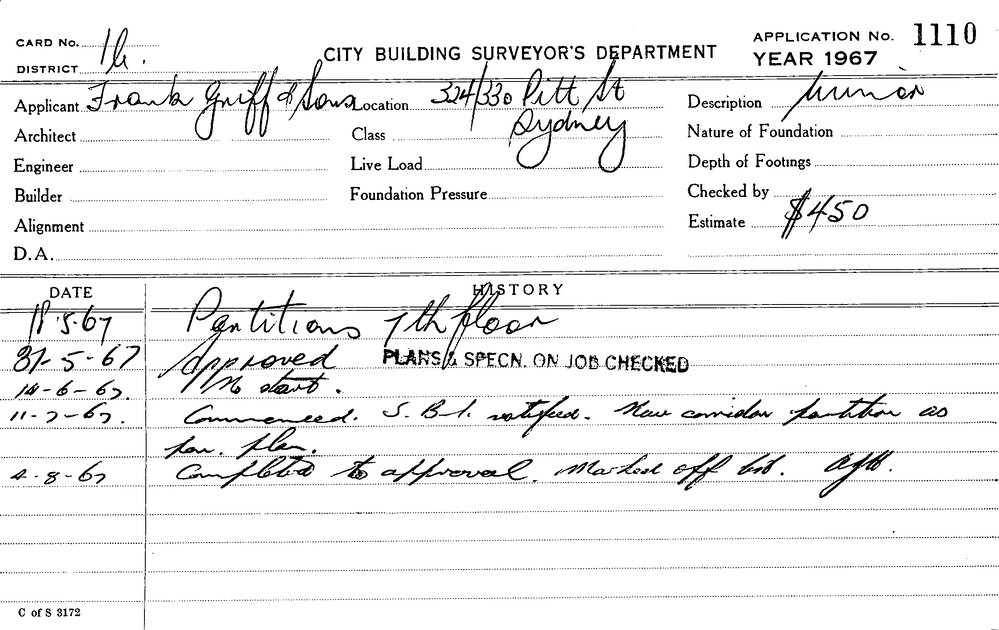 CARD No. 16. CITY BUILDING SURVEYOR'S DEPARTMENT APPLICATION No. 1110
DISTRICT YEAR 1967
Applicant Frank Griff & Sons Location 324/330 Pitt St Description Minor
Architect Class Sydney Nature of Foundation
Engineer Live Load Depth of Footings
Builder Foundation Pressure Checked by
Alignment Estimate $450
D.A.
DATE HISTORY
18.5.67 Partitions 7th floor
31-5-67 Approved PLANS & SPECN. ON JOB CHECKED
14-6-67. No start.
11-7-67. Commenced. S.B.I. notified. New corridor partition as
per. plan.
4-8-67 Completed to approval. Marked off list.
C of S 3172